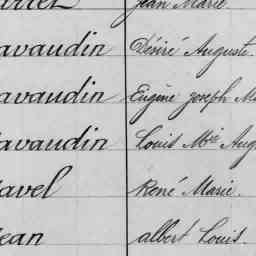 Jean Marie
avaudin Désiré Auguste.
avaudin Eugène Joseph M
avaudin Louis Mie Aug
avel René Marie.
ean albert Louis.